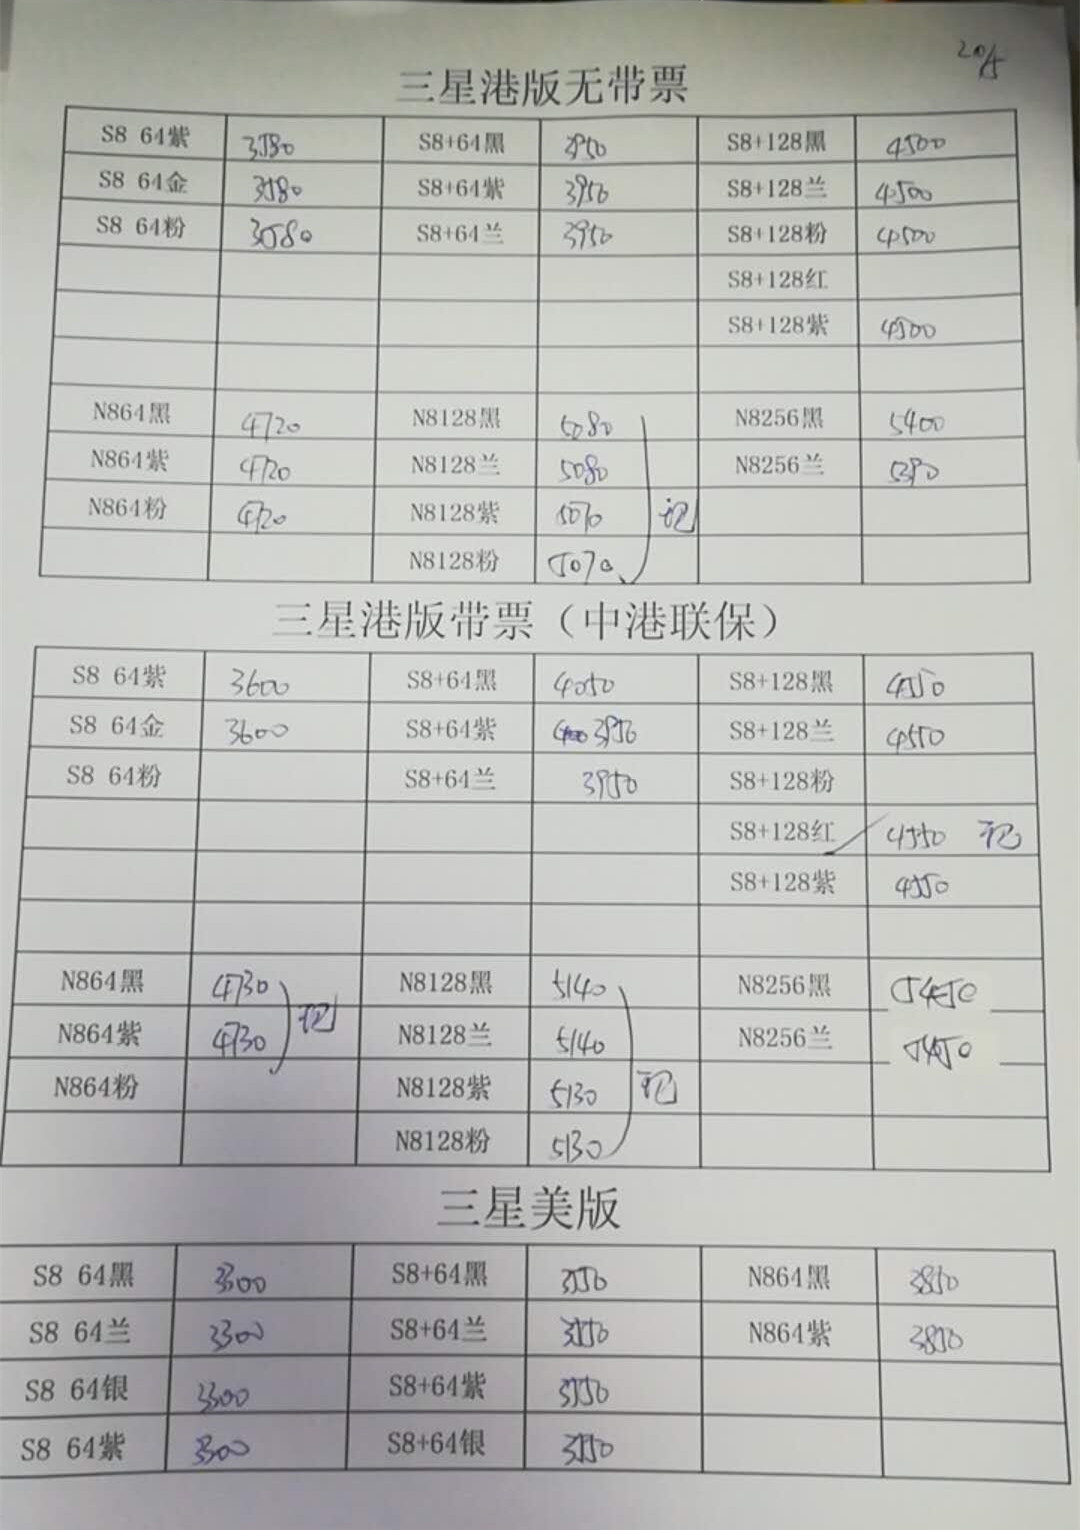 20/5
三星港版无带票
S8 64紫 3580 S8+64黑 3950 S8+128黑 4500
S8 64金 3580 S8+64紫 3950 S8+128兰 4500
S8 64粉 3580 S8+64兰 3950 S8+128粉 4500
S8+128红
S8+128紫 4500
N864黑 4720 N8128黑 5080 N8256黑 5400
N864紫 4720 N8128兰 5080 N8256兰 5390
N864粉 4720 N8128紫 5070 现
N8128粉 5070
三星港版带票（中港联保）
S8 64紫 3600 S8+64黑 4050 S8+128黑 4550
S8 64金 3600 S8+64紫 3950 S8+128兰 4550
S8 64粉 S8+64兰 3950 S8+128粉
S8+128红 4550 现
S8+128紫 4550
N864黑 4730 现 N8128黑 5140 N8256黑 5450
N864紫 4730 N8128兰 5140 N8256兰 5450
N864粉 N8128紫 5130 现
N8128粉 5130
三星美版
S8 64黑 3300 S8+64黑 3550 N864黑 3850
S8 64兰 3300 S8+64兰 3550 N864紫 3850
S8 64银 3300 S8+64紫 3550
S8 64紫 3300 S8+64银 3550